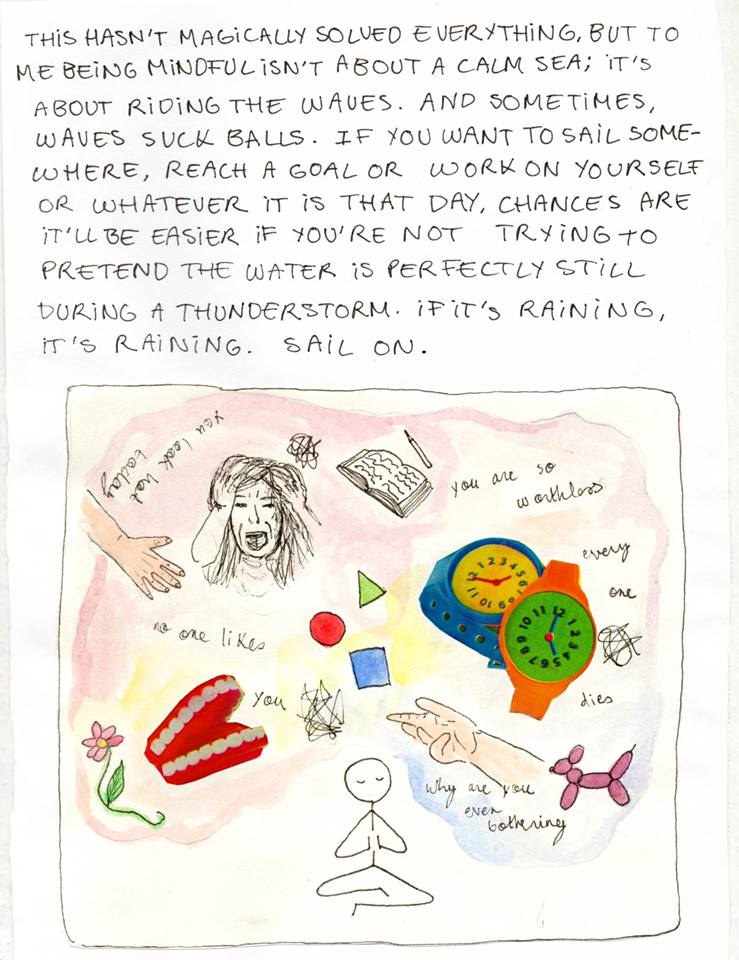 THIS HASN'T MAGICALLY SOLVED EVERYTHING, BUT TO
ME BEING MINDFUL ISN'T ABOUT A CALM SEA; IT'S
ABOUT RIDING THE WAVES. AND SOMETIMES,
WAVES SUCK BALLS. IF YOU WANT TO SAIL SOME-
WHERE, REACH A GOAL OR WORK ON YOURSELF
OR WHATEVER IT IS THAT DAY, CHANCES ARE
IT'LL BE EASIER IF YOU'RE NOT TRYING TO
PRETEND THE WATER IS PERFECTLY STILL
DURING A THUNDERSTORM. IF IT'S RAINING,
IT'S RAINING. SAIL ON.
you look hot
today
you are so
worthless
every
one
dies
no one likes
you
why are you
even
bothering
12 1 2 3 4 5 6 7 8 9 10 11 12